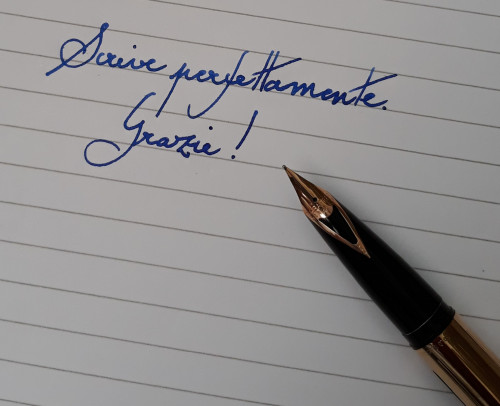 Scrive perfettamente.
Grazie!